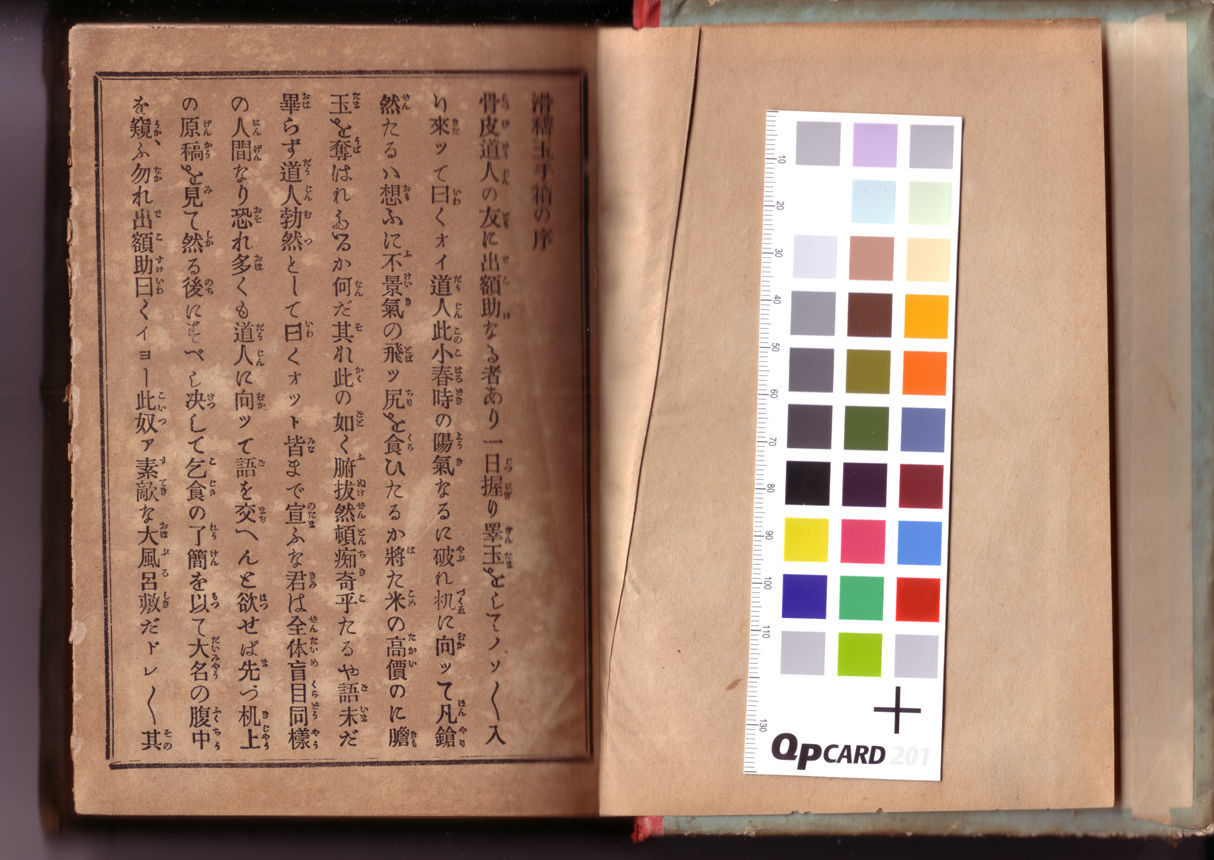 滑稽玉手箱の序
骨皮道人の友に出額助なる者あり一日握り睾玉をしてノソ〱入
り來ッて曰くオイ道人此小春時の陽氣なるに破れ机に向ッて凡鎗
然たるハ想ふに不景氣の飛ッ尻を食ひたるか將た米の高價のに膽
玉を奪はれたるか何だ其れ此の如く腑拔然頓痴奇乎たるや語未だ
畢らず道人勃然として曰くオット皆まで宣ふな君は全体盲目同樣
の人間なり恐れ多くも道人に向ッて語を交へんと欲せば先づ机上
の原稿を見て然る後に述べし决して乞食の了簡を以て大名の腹中
を窺ふ勿れ出額助曰くイヨー此奴ア素敵な大風呂敷だドレ〱其
10
20
30
40
50
60
70
80
90
100
110
130
QpCARD 201